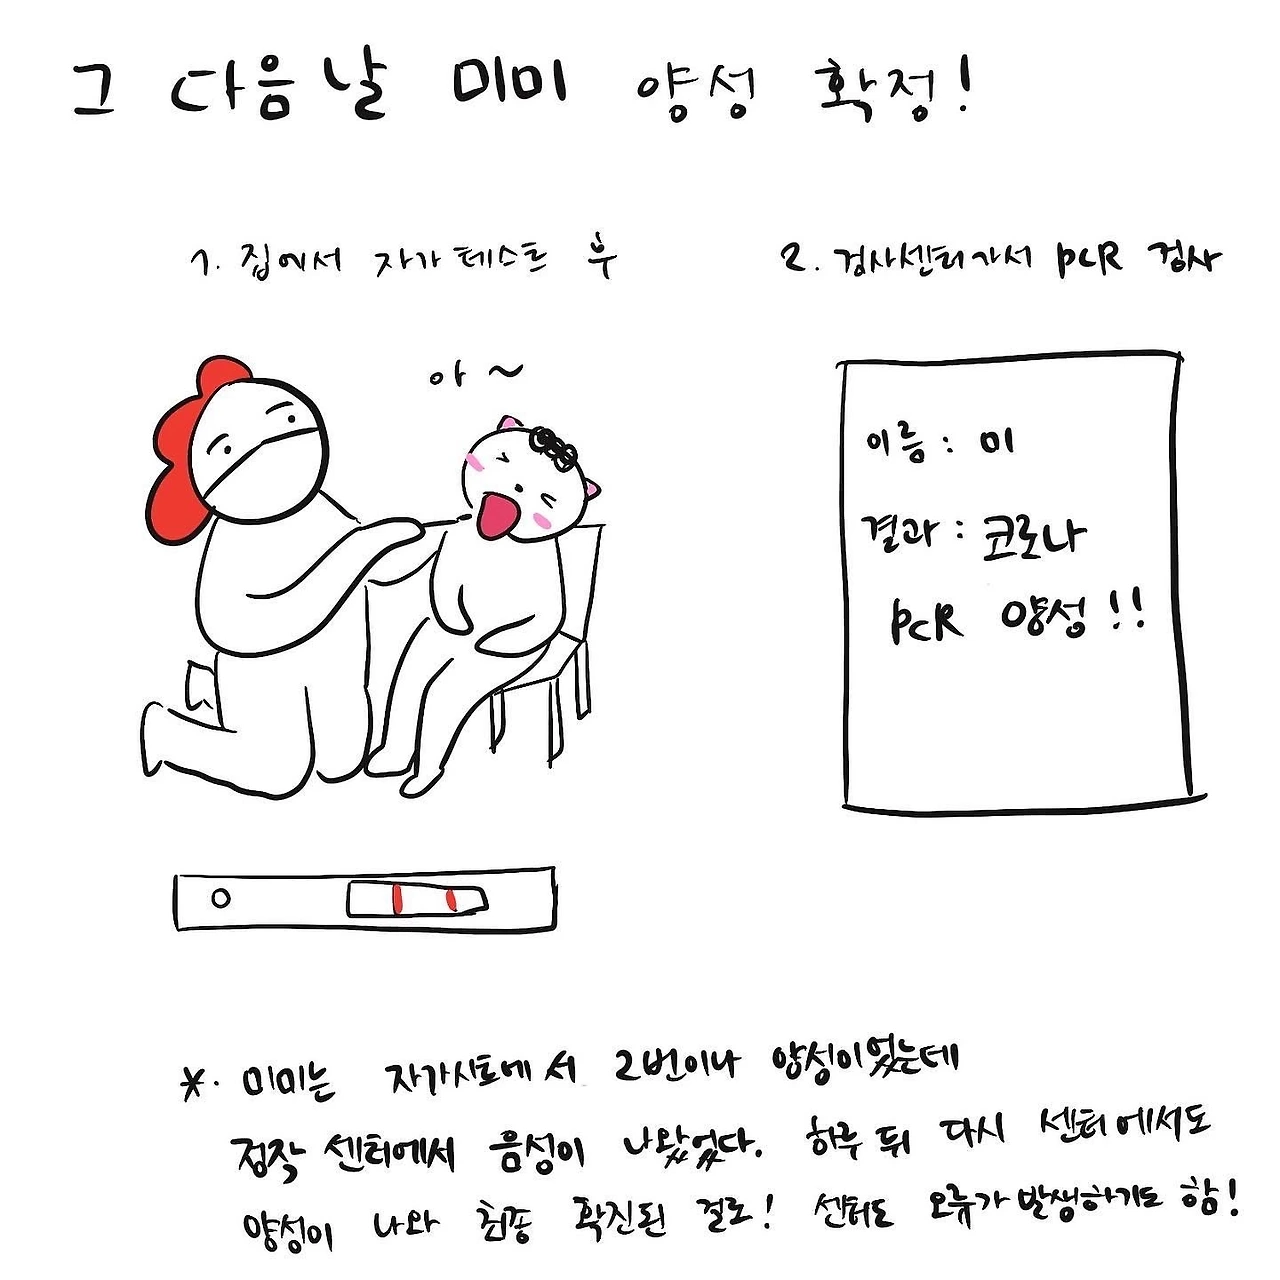 그 다음날 미미 양성 확정!
1. 집에서 자가테스트 후
2. 검사센터가서 PCR 검사
아~
이름 : 미
결과 : 코로나
PCR 양성!!
*. 미미는 자가시트에서 2번이나 양성이었는데
정작 센터에서 음성이 나왔었다. 하루 뒤 다시 센터에서도
양성이 나와 최종 확진된 걸로! 센터도 오류가 발생하기도 함!